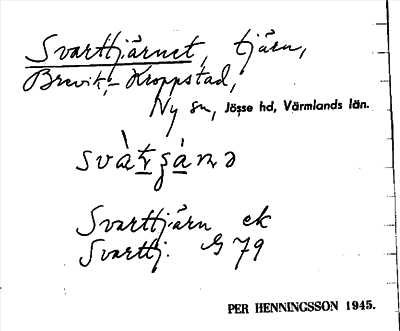 Svarttjärnet, tjärn,
Brevik, - Kroppstad,
Ny sn, Jösse hd, Värmlands län.
Svarttjärn ek
Svarttj. G 79
PER HENNINGSSON 1945.